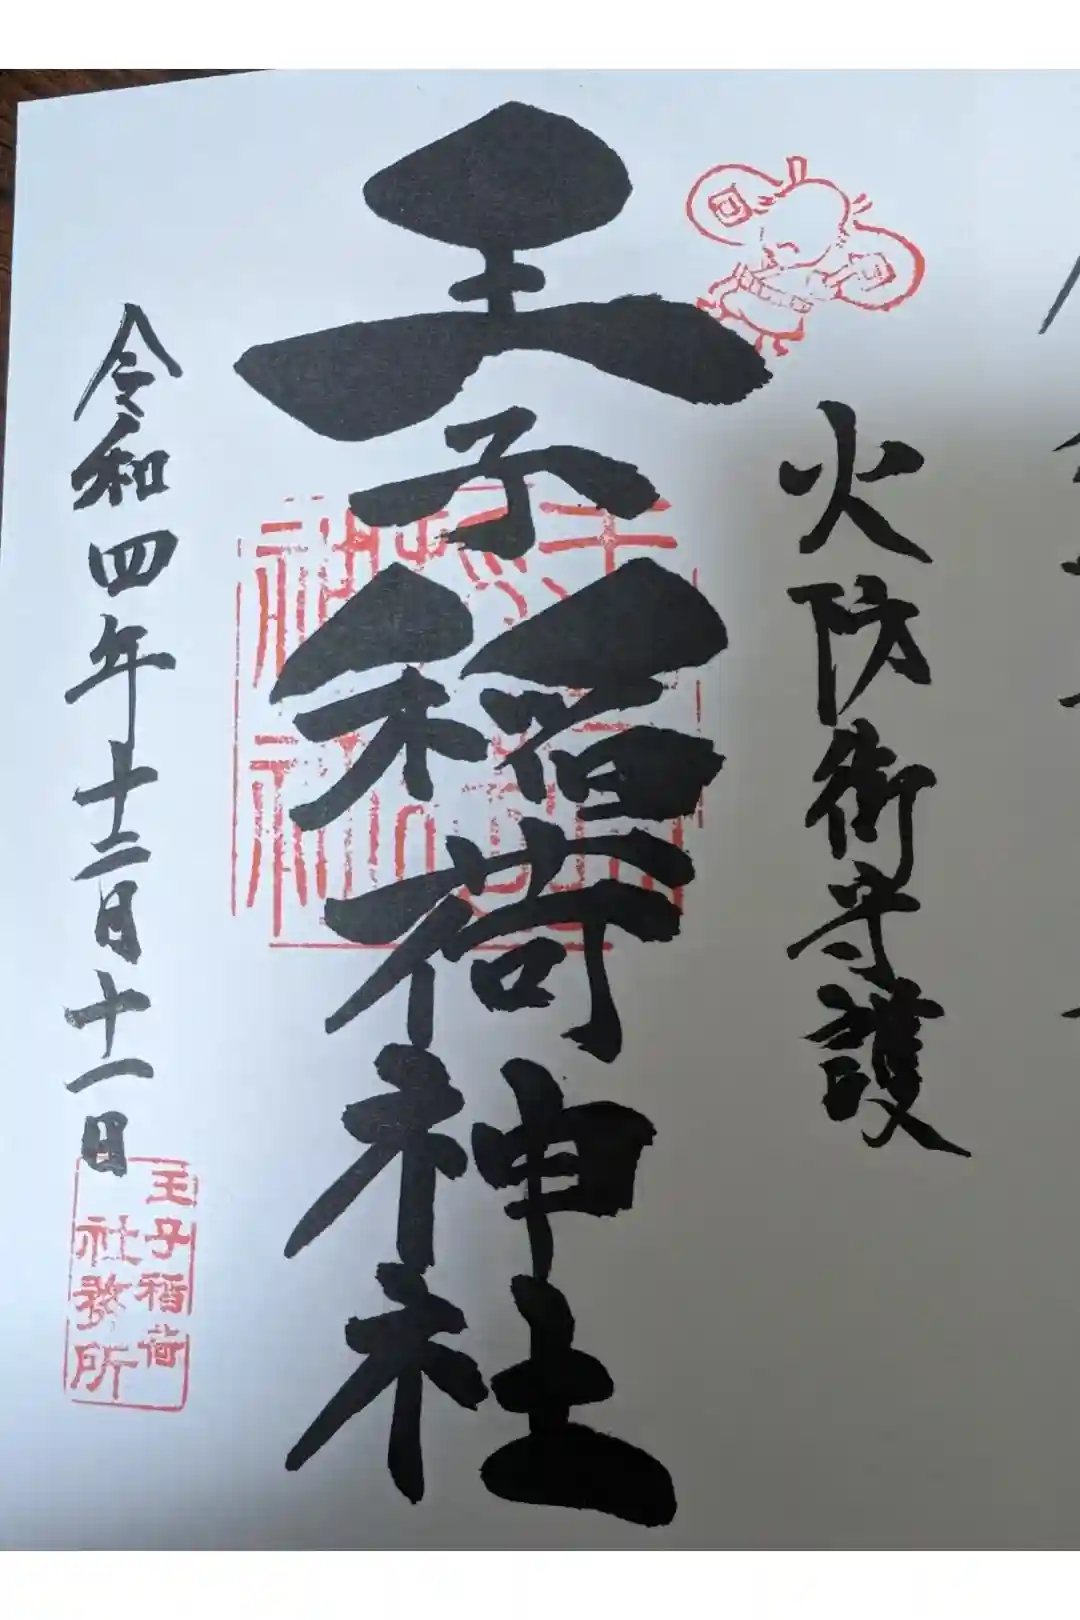 火防御守護
王子稲荷神社
令和四年十二月十一日
王子稲荷
社務所